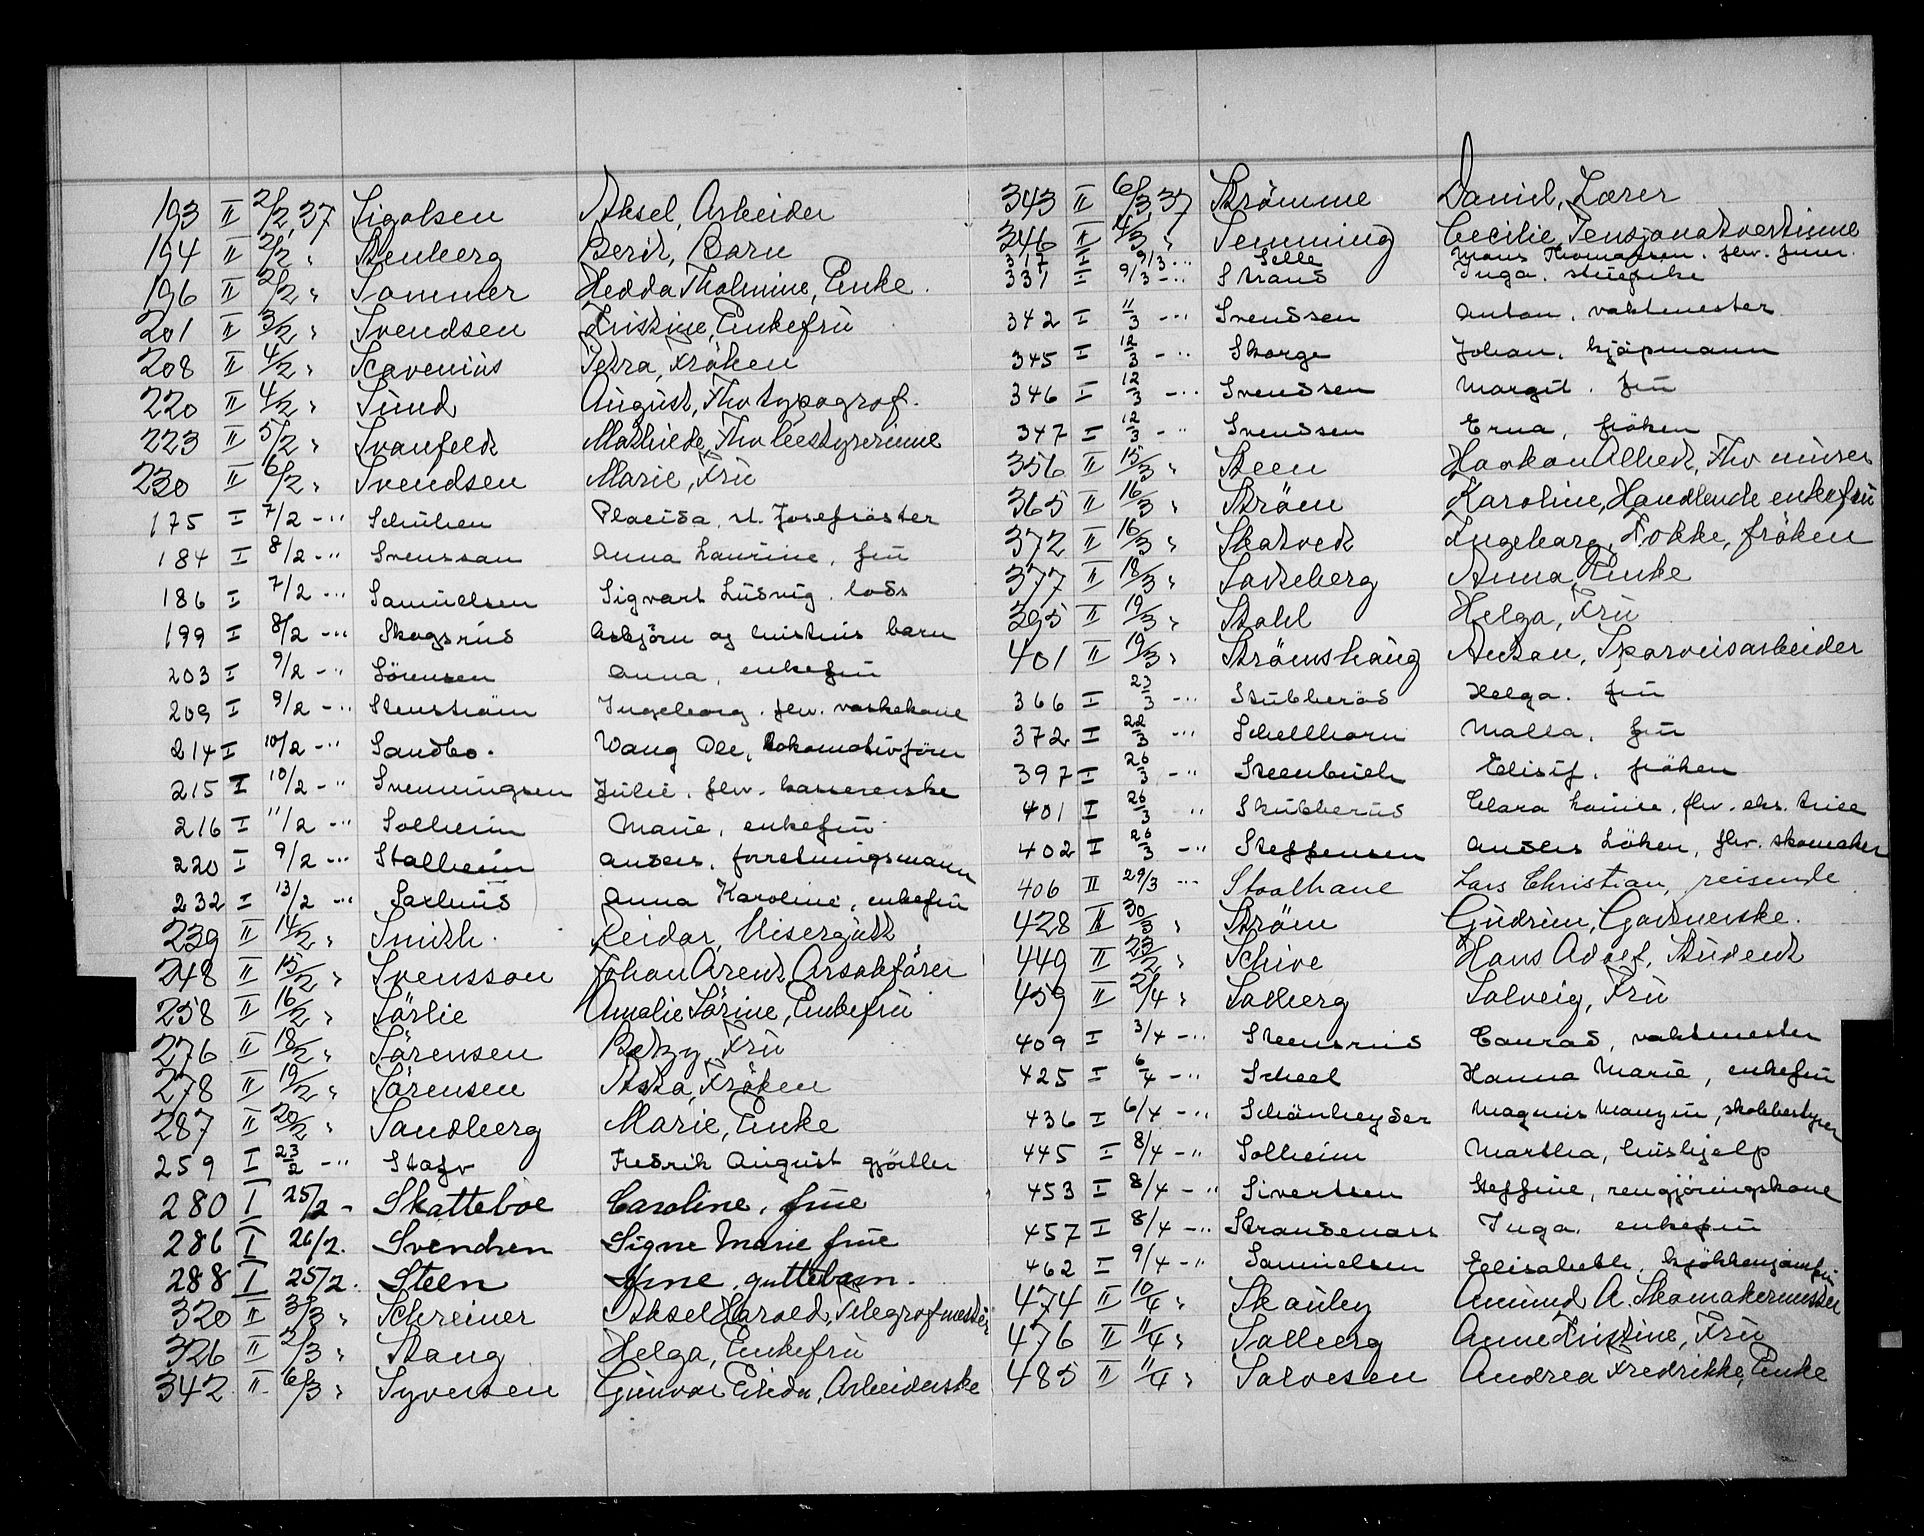 193 II 2/2,37 Sigolsen Aksel, Arbeider
194 II 2/2 " Stenberg Berit, Barn
196 II 2/2 " Sommer Hedda Tholmine, Enke.
201 II 3/2 " Svendsen Kristine, Enkefru
208 II 4/2 " Scavenius Petra, Fröken
220 II 4/2 " Sund August, Fhv typograf.
223 II 5/2 " Svanfeldt Mathilde, Fhv
230 II 6/2 " Svendsen Marie, Fru
175 I 7/2 -"- Schulien Placida, st. Josefsöster
184 I 8/2 -"- Svenssan Anna Laurine, fru
186 I 7/2 -"- Samuelsen Sigvart Ludvig. lods
199 I 8/2 -"- Skogsrud Asbjörn og hustrus barn
203 I 9/2 -"- Sörensen Anna, enkefru
209 I 9/2 -"- Stenström Ingeborg. fhv. vaskekone
214 I 10/2 -"- Sandbo. Wang Ole, Lokomotivförer
215 I 10/2 -"- Svenningsen Julie. fhv. kassererske
216 I 11/2 -"- Solheim Marie, enkefru
220 I 9/2 -"- Stalheim Anders. forretningsmann
232 I 13/2 -"- Saxlund Anna Karoline, enkefru
239 II 14/2 " Smith. Reidar, Visergutt
248 II 15/2 " Svensson Johan Arent,
258 II 16/2 " Sörlie Amalie Sörine, Enkefru
276 II 18/2 " Sörensen Betzy, Fru
278 II 19/2 " Sörensen Asta, Fröken
287 II 20/2 " Sandberg Marie, Enke
259 I 23/2 -"- Stafv Fredrik August gjörtler
280 I 25/2 - Skatteboe Caroline, frue
286 I 26/2. Svendsen Signe Marie frue
288 I 25/2. Steen Arne, guttebarn.
320 II 3/3 " Schreiner Aksel Harald, Telegrafmester
326 II 2/3 " Stang Helga, Enkefru
342 II 6/3 " Syversen Gunvor Elida, Arbeiderske
343 II 6/3 37 Strömme Daniel, Lærer
346 II 4/3 " Semming Cecilie, Pensjonatvertinne
317 I 9/3 -"- Selle Mons Thomassen. fhv.
331 I 9/3 -"- Strand Inga. stuepike
342 I 11/3 -"- Svendsen Anton, vaktmester
345 I 12/3 -"- Skorge Johan, kjöpmann
346 I 12/3 -"- Svendsen Margit. fru
347 I 12/3 -"- Svendsen Erna, fröken
356 II 15/3 " Steen Haakon Albert, Fhv murer
365 II 16/3 " Ström Karoline, Handlende enkefru
372 II 16/3 " Skatvedt Ingeborg, Tokke, fröken
377 II 18/3 " Saltzberg Anna, Enke
395 II 19/3 " Stahl Helga, Fru
401 II 19/3 " Strömshaug Anton, Sporveisarbeider
366 I 23/3 -"- Stubberöd Helga. fru
372 I 22/3 -"- Schellhorn Malla, fru
397 I 26/3 -"- Steenbuch Elisif. fröken
401 I 26/3 -"- Skubberud Clara Louise. fhv.
402 I 26/3 -"- Steffensen Anders Löken, fhv. skomaker
406 II 29/3 -"- Staalhane Lars Christian, reisende
428 II 30/3 " Ström Gudrun, Gartnerske.
449 II 22/2 " Schive Hans Adolf, Student
459 II 2/4 " Solberg Solveig, Fru
409 I 3/4 -"- Steensrud Conrad, vaktmester
425 I 6/4 -"- Scheel Hanna Marie, enkefru
436 I 6/4 -"- Schönheyder Magnus skolebestyrer
445 I 8/4 -"- Solheim Martha, hushjelp
453 I 8/4 -"- Sivertsen Steffine, rengjöringskone
457 I 8/4 -"- Strandenæs Inga. enkefru
462 I 9/4 -"- Samuelsen Elisabeth, kjökkenjomfru
474 II 10/4 " Skauby Amund A. Skomakermester
476 II 11/4 " Solberg Anne Kristine, Fru
485 II 11/4 " Salvesen Andrea Fredrikke, Enke